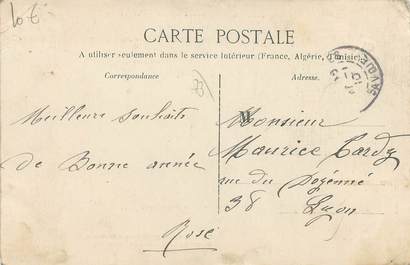 20€
CARTE POSTALE
A utiliser seulement dans le service intérieur (France, Algérie, Tunisie).
Correspondance
Adresse.
Meilleurs souhaits
de Bonne année
Rose
M
Monsieur
Maurice Tardy
rue du Doyenné
38 Lyon